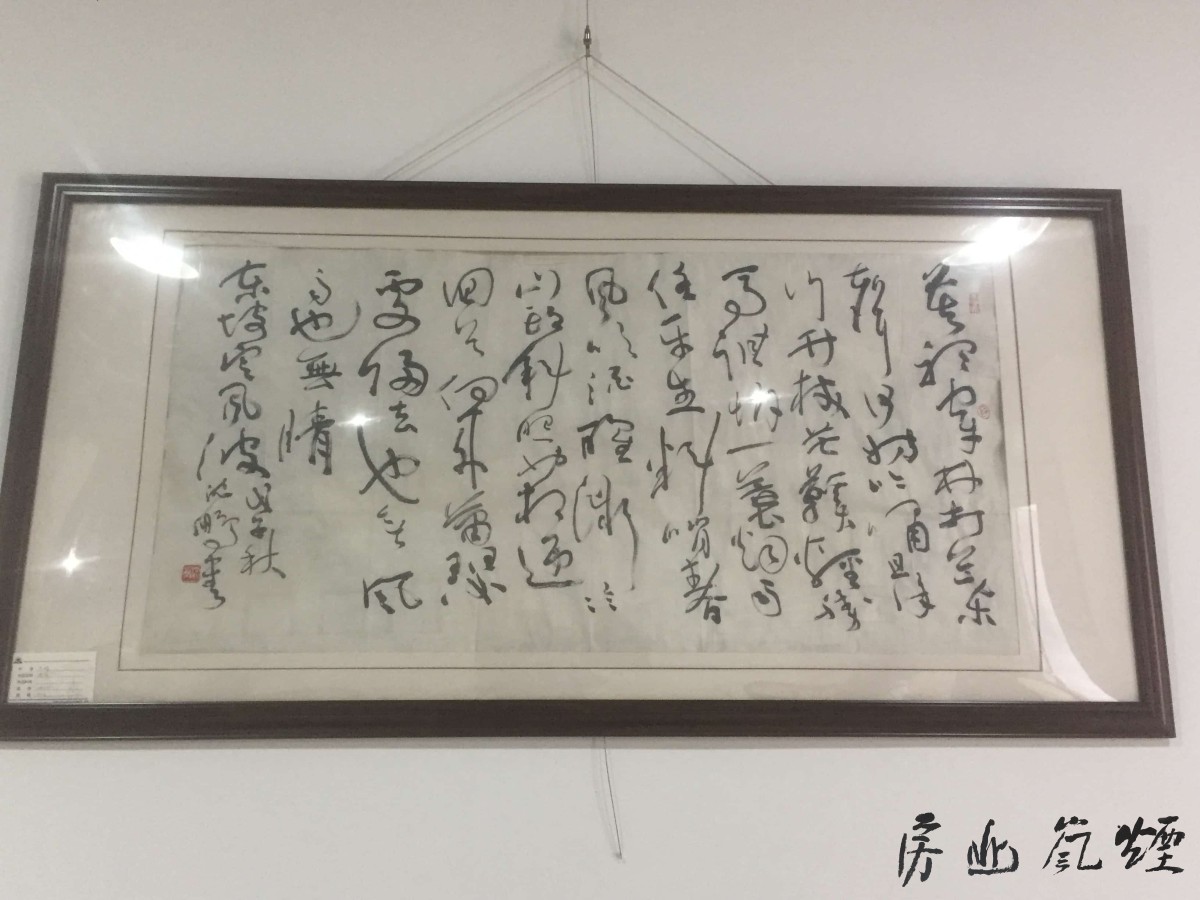 莫聽穿林打葉
聲何妨吟嘯且徐
行竹杖芒鞋輕勝
馬誰怕一蓑烟雨
任平生料峭春
風吹酒醒微冷
山頭斜照却相迎
回首向来蕭瑟
處歸去也无風
雨也無晴
東坡定風波 戊子秋
沈鵬書
煙 房